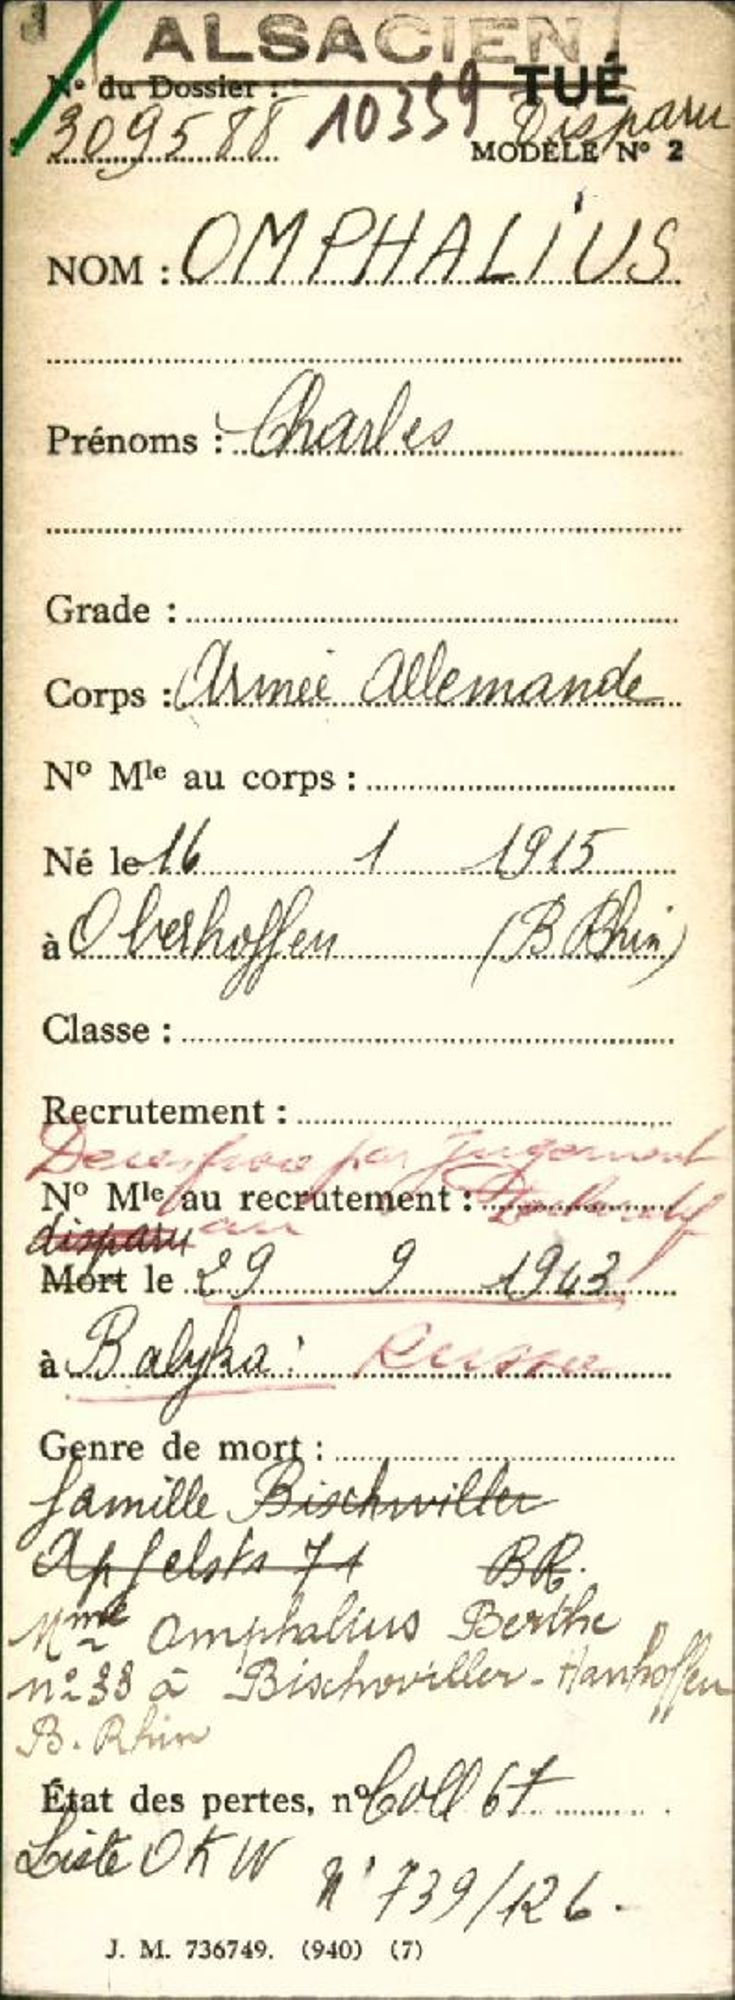 ALSACIEN
N° du Dossier : TUÉ
309588 10359 Disparu
MODÈLE N° 2
NOM : OMPHALIUS
Prénoms : Charles
Grade :
Corps : Armée Allemande
N° Mle au corps :
Né le 16 1 1915
à Oberhoffen (B Rhin)
Classe :
Recrutement :
par Jugement
N° Mle au recrutement : Declaratif
disparu au
Mort le 29 9 1943
à Balyka : Russie
Genre de mort :
famille Bischwiller
Apfelstr 71 BR.
Mme Omphalius Berthe
n° 38 à Bischwiller-Hanhoffen
B. Rhin
État des pertes, n° Coll 67
Liste OKW N° 739/126.
J. M. 736749. (940) (7)